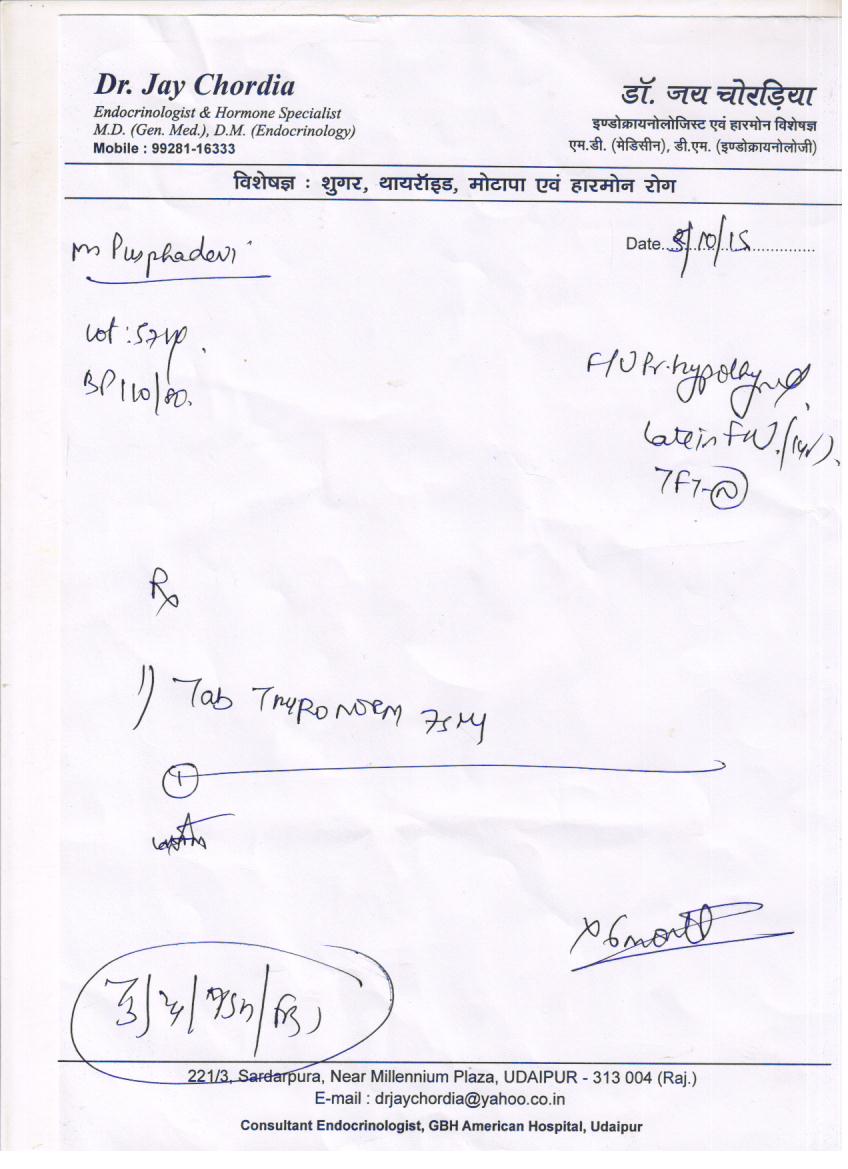 Dr. Jay Chordia
Endocrinologist & Hormone Specialist
M.D. (Gen. Med.), D.M. (Endocrinology)
Mobile : 99281-16333
डॉ. जय चोरड़िया
इण्डोक्रायनोलोजिस्ट एवं हारमोन विशेषज्ञ
एम.डी. (मेडिसीन), डी.एम. (इण्डोक्रायनोलोजी)
विशेषज्ञ : शुगर, थायरॉइड, मोटापा एवं हारमोन रोग
Pusphadevi
Date. 8/10/15
BP 110/80.
F/U Pr. hypothy
TFT-N
Rx
1) Tab Thyronorm 75
1
x 6 month
221/3, Sardarpura, Near Millennium Plaza, UDAIPUR - 313 004 (Raj.)
E-mail : drjaychordia@yahoo.co.in
Consultant Endocrinologist, GBH American Hospital, Udaipur